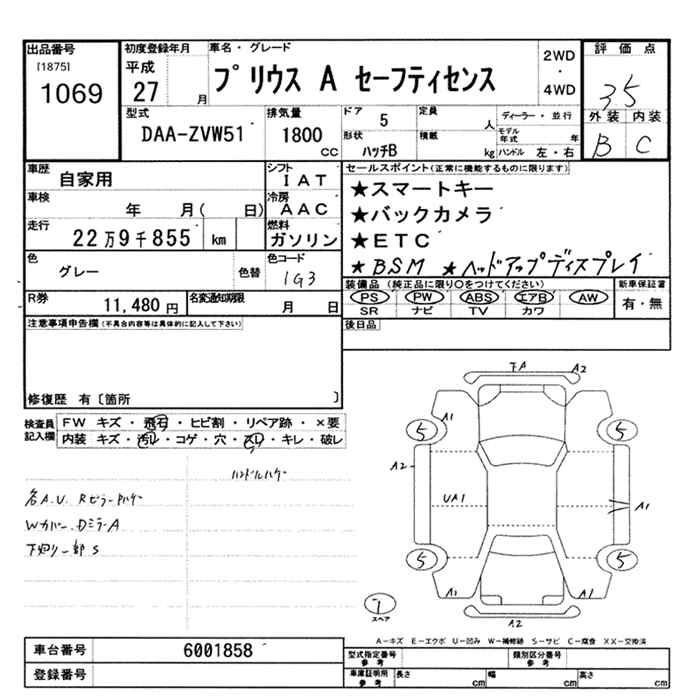 出品番号 初度登録年月 車名・グレード 2WD 評価点
[1875] 平成 プリウス A セーフティセンス ・
1069 27 月 4WD 35
型式 排気量 ドア 5 定員 人 ディーラー・並行 外装 内装
DAA-ZVW51 1800 CC 形状 ハッチB 積載 kg モデル年式 年 B C
ハンドル 左・右
車歴 自家用 シフト IAT セールスポイント(正常に機能するものに限ります)
車検 年 月( 日) 冷房 AAC ★スマートキー
走行 22万9千855 km 燃料 ガソリン ★バックカメラ
★ETC
色 グレー 色替 色コード 1G3 ★BSM ★ヘッドアップディスプレイ
装備品(純正品に限り○をつけてください) 新車保証書
R券 11,480円 名変通知期限 月 日 PS PW ABS エアB AW 有・無
SR ナビ TV カワ
注意事項申告欄(不具合内容等は具体的に記入して下さい) 後日品
修復歴 有〔箇所 〕
検査員記入欄 FW キズ・飛石・ヒビ割・リペア跡・×要
内装 キズ・汚レ・コゲ・穴・スレ・キレ・破レ
ハンドルハゲ
各A.U.
Wカバー.DミラーA
下廻り一部S
A2
A1
5 5
A2
UA1 A1
5 5
A1 A1
スペア
A2
A-キズ E-エクボ U-凹み W-補修跡 S-サビ C-腐食 XX-交換済
車台番号 6001858 型式指定番号 参考 類別区分番号 参考
登録番号 車庫証明用 参考 長さ cm 幅 cm 高さ cm